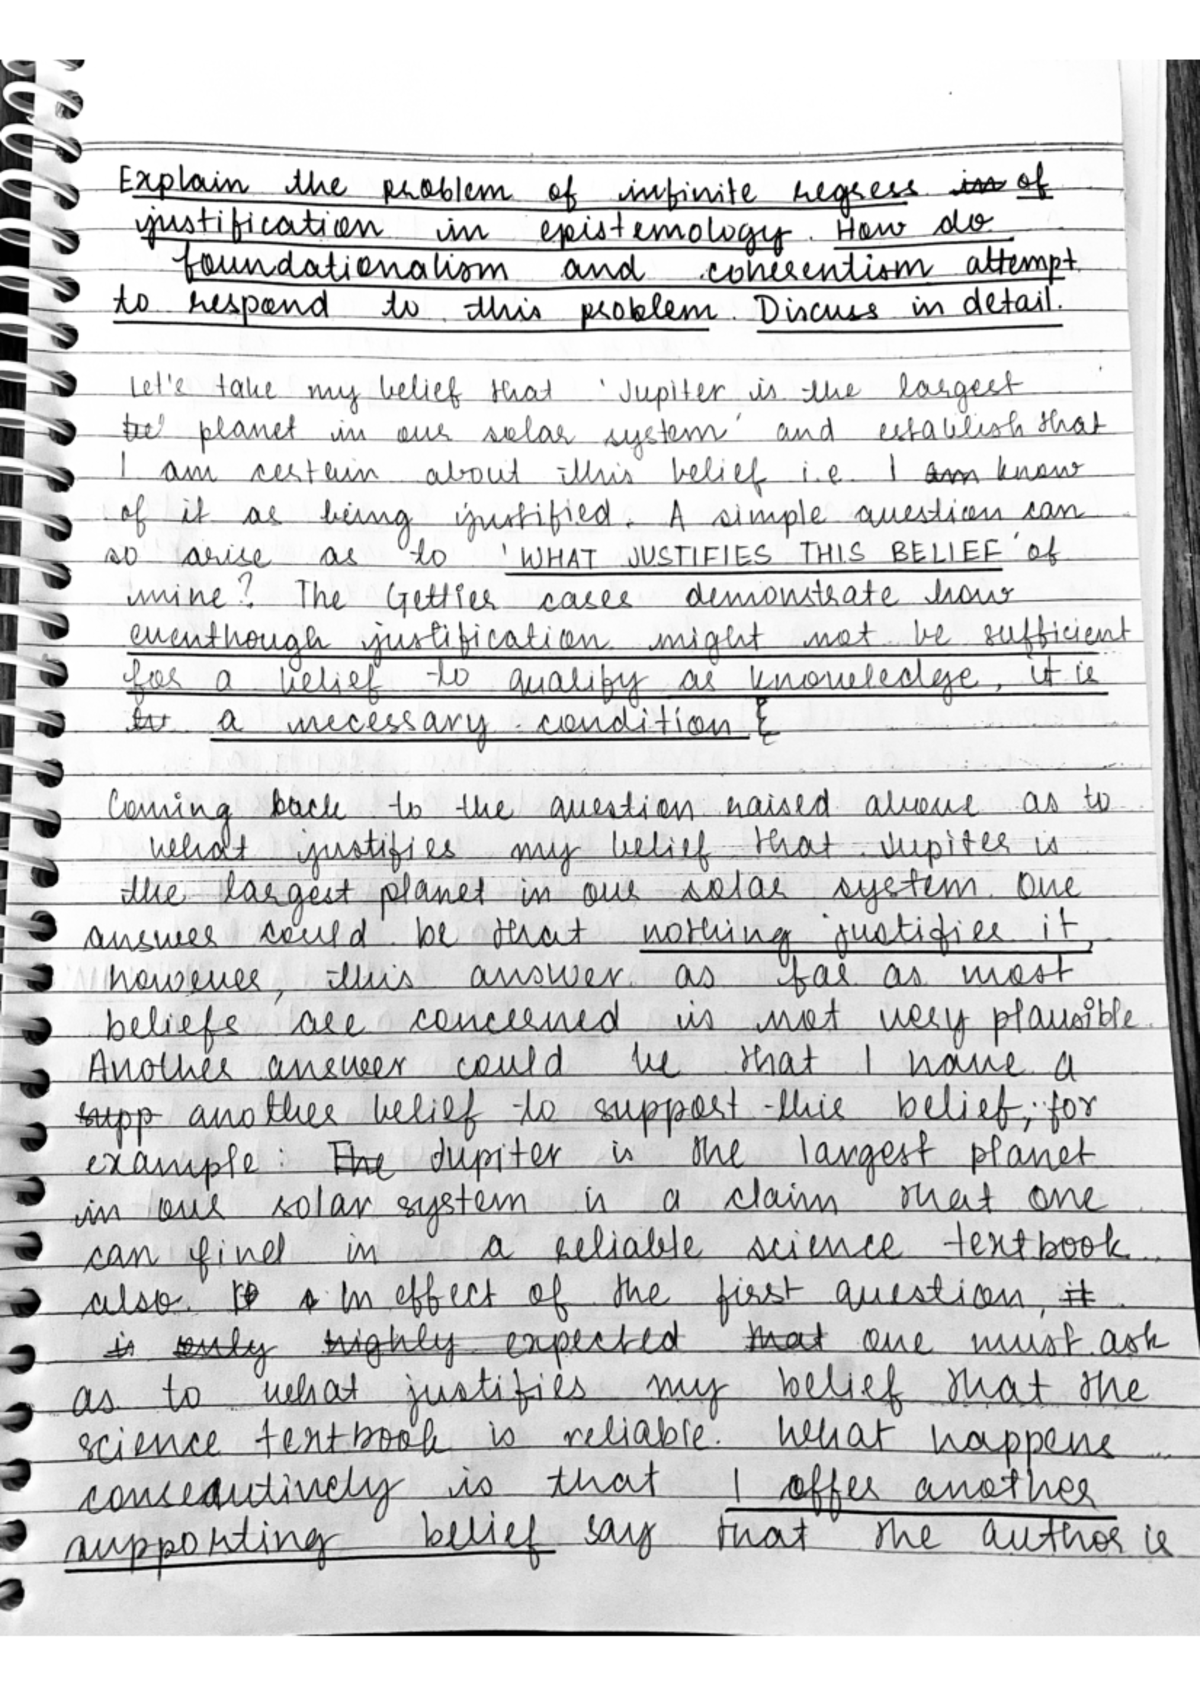 Explain the problem of infinite regress in of
justification in epistemology. How do
foundationalism and coherentism attempt
to respond to this problem. Discuss in detail.
Let's take my belief that 'Jupiter is the largest
be' planet in our solar system' and establish that
I am certain about this belief i.e. I am know
of it as being justified. A simple question can
so arise as to 'WHAT JUSTIFIES THIS BELIEF' of
mine? The Gettier cases demonstrate how
eventhough justification might not be sufficient
for a belief to qualify as knowledge, it is
a necessary condition
Coming back to the question raised above as to
what justifies my belief that Jupiter is
the largest planet in our solar system. One
answer could be that nothing justifies it,
however, this answer as far as most
beliefs are concerned is not very plausible.
Another answer could be that I have a
supp another belief to support this belief, for
example: The Jupiter is the largest planet
in our solar system is a claim that one
can find in a reliable science textbook
also. In effect of the first question, it
is only highly expected that one must ask
as to what justifies my belief that the
science textbook is reliable. What happens
consecutively is that I offer another
supporting belief say that the author is